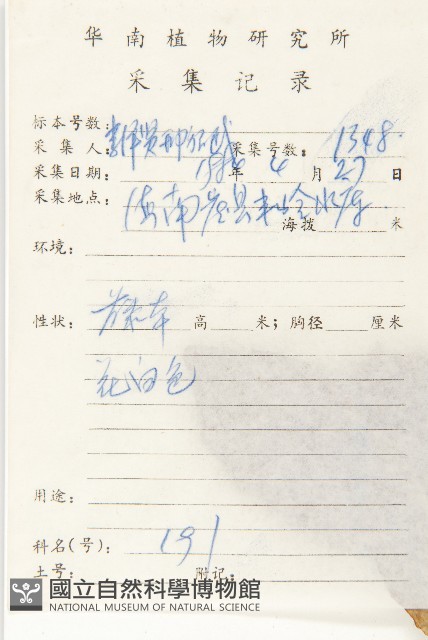 华南植物研究所
采集记录
标本号数:
采集人: 采集号数: 1348.
采集日期: 年 4 月 27 日
采集地点: 海南崖县 水库
海拨 米
环境:
性状: 草本 高 米; 胸径 厘米
花白色
用途:
科名(号): 191
土号: 附记:
國立自然科學博物館
NATIONAL MUSEUM OF NATURAL SCIENCE